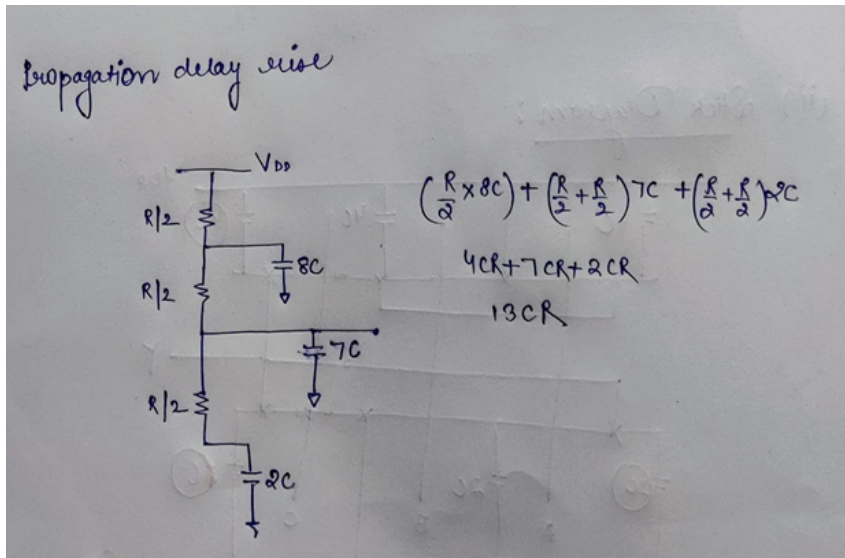 Propagation delay rise
VDD
R/2
8C
R/2
7C
R/2
2C
(R/2 x 8C) + (R/2 + R/2) 7C + (R/2 + R/2) 2C
4CR + 7CR + 2CR
13CR